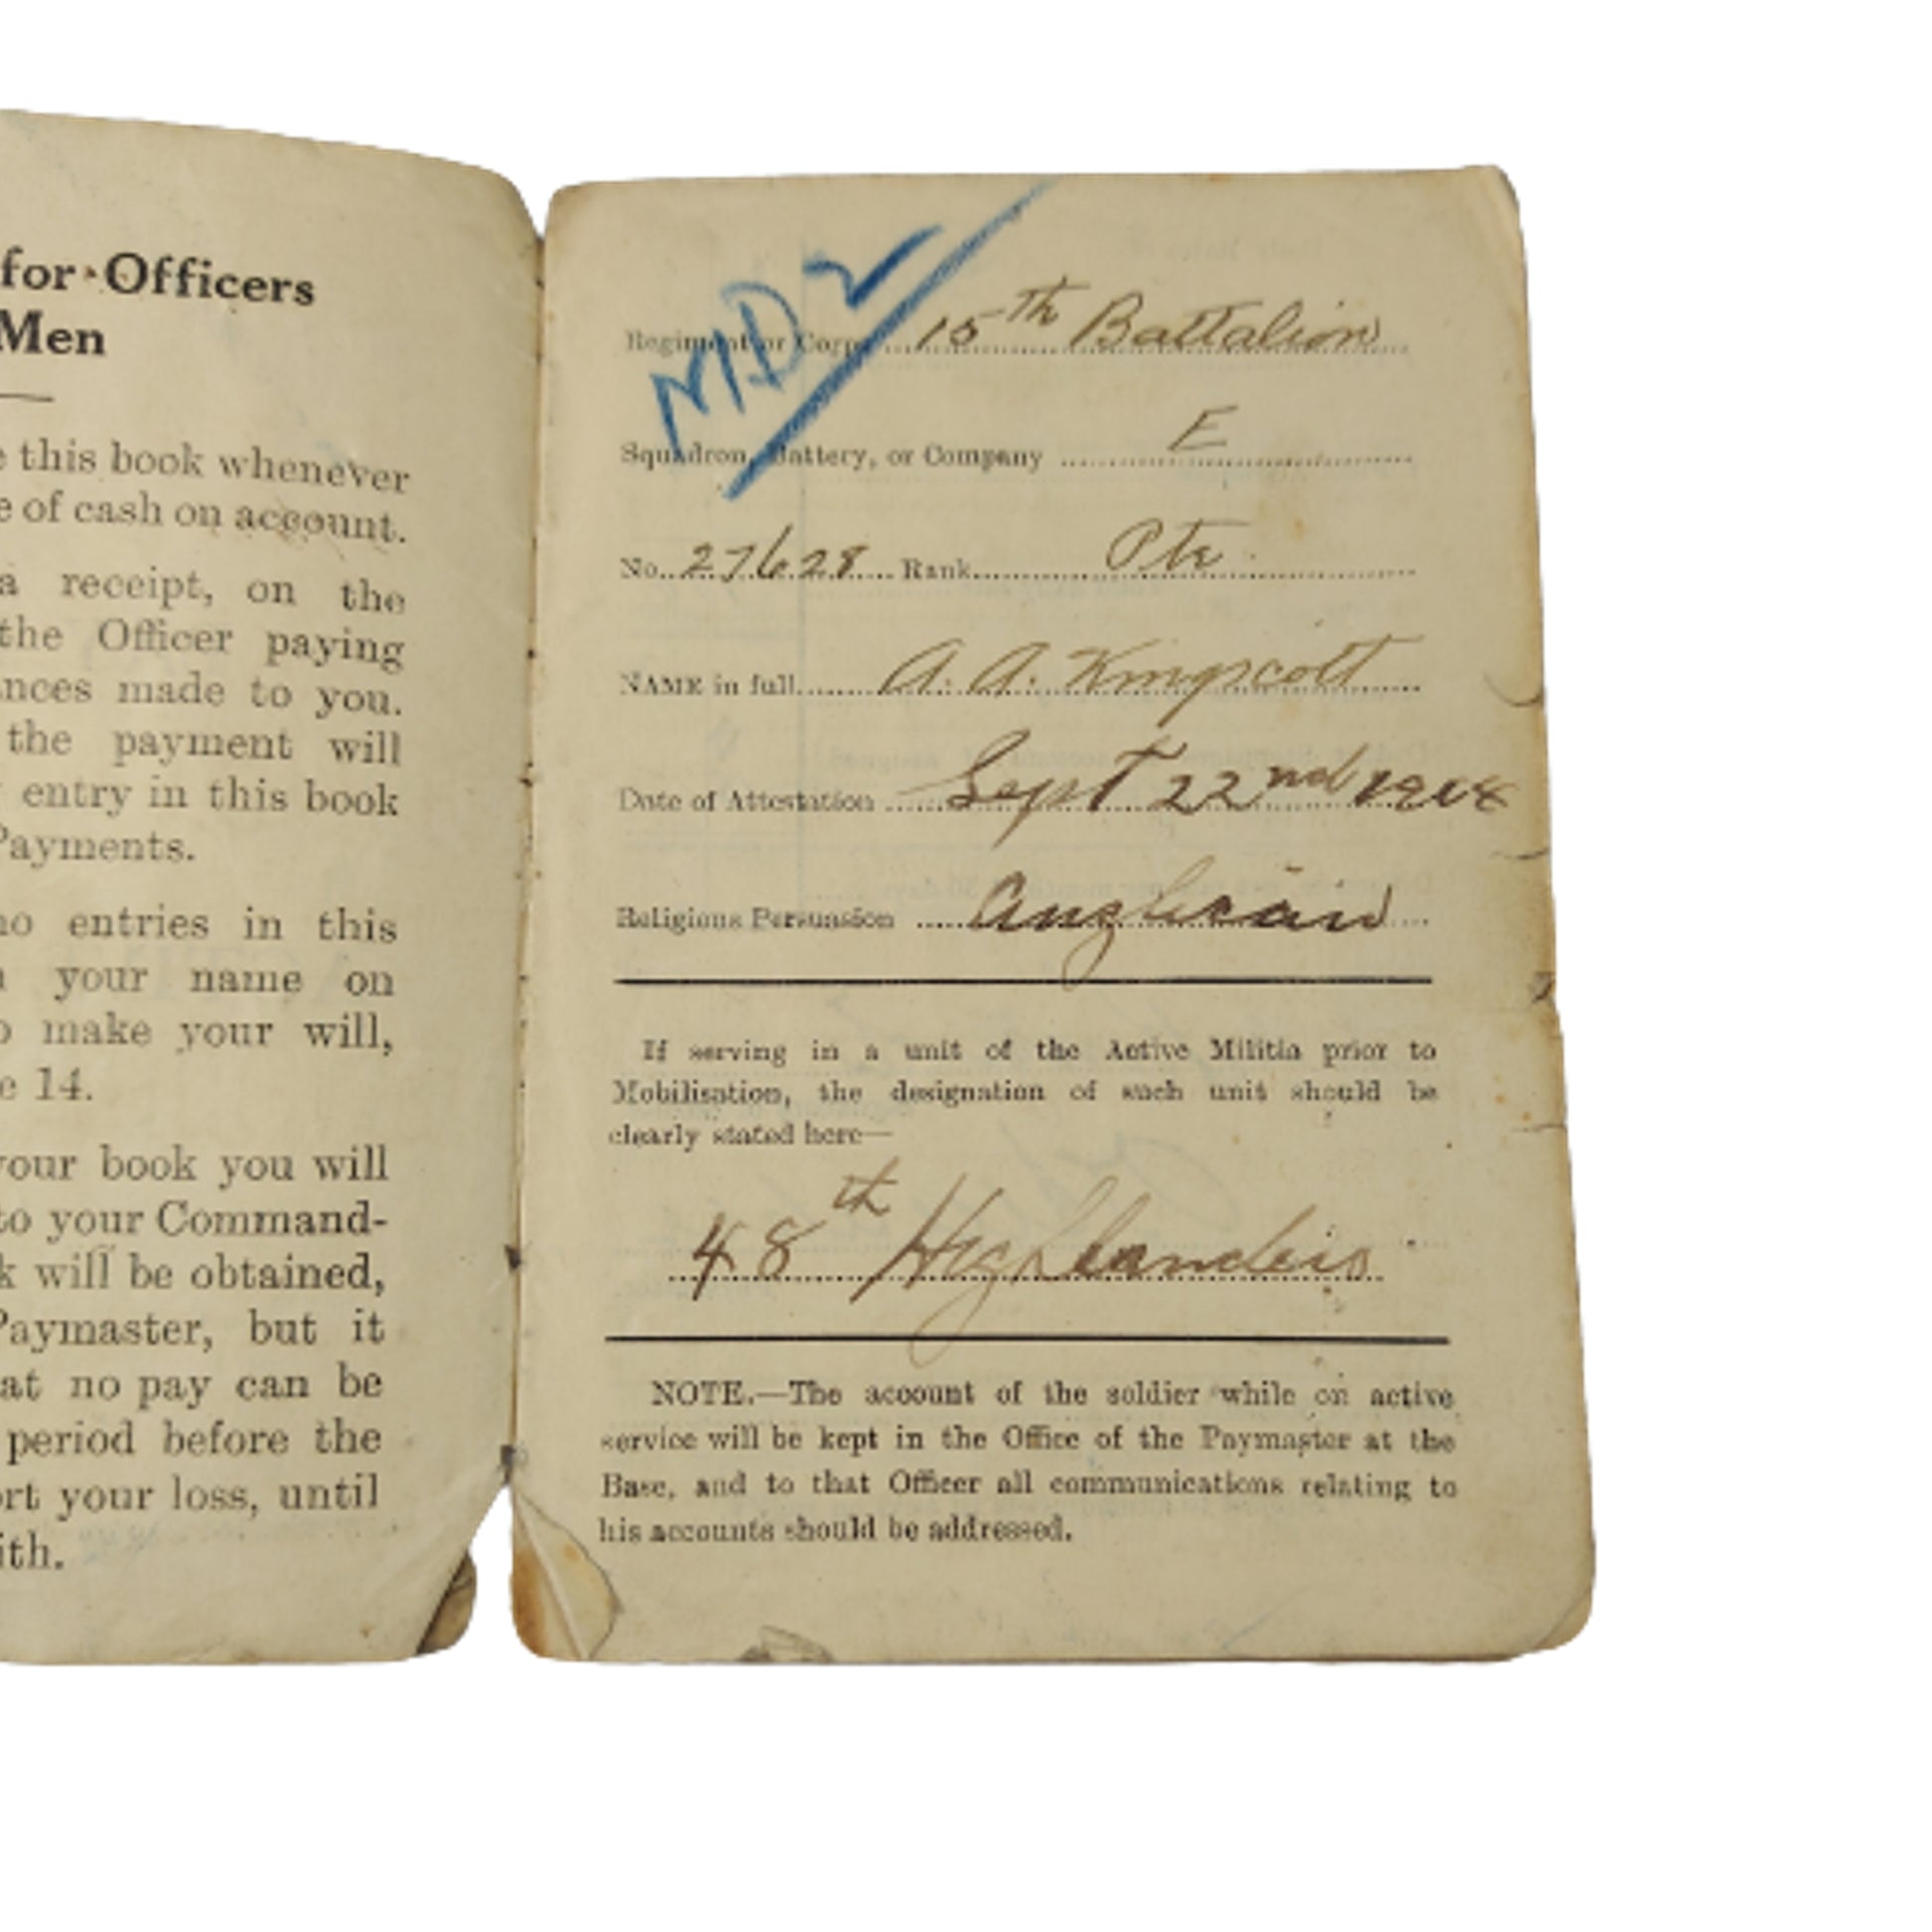 for Officers
Men
e this book whenever
e of cash on account.
a receipt, on the
the Officer paying
ances made to you.
the payment will
entry in this book
Payments.
no entries in this
your name on
o make your will,
e 14.
your book you will
to your Command-
k will be obtained,
Paymaster, but it
at no pay can be
period before the
ort your loss, until
ith.
MD 2
Regiment or Corps 15th Battalion
Squadron, Battery, or Company E
No. 27628 Rank Pte
NAME in full A. A. Kingscott
Date of Attestation Sept 22nd 1914
Religious Persuasion Anglican
If serving in a unit of the Active Militia prior to
Mobilisation, the designation of such unit should be
clearly stated here—
48th Highlanders
NOTE.—The account of the soldier while on active
service will be kept in the Office of the Paymaster at the
Base, and to that Officer all communications relating to
his accounts should be addressed.